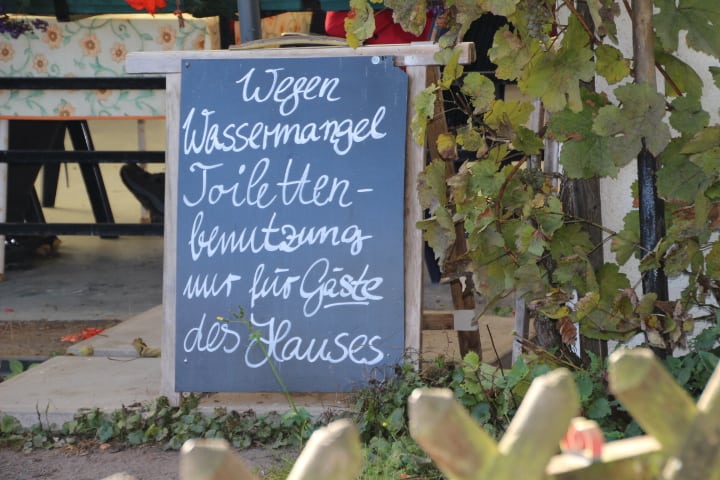 Wegen
Wassermangel
Toiletten-
benutzung
nur für Gäste
des Hauses